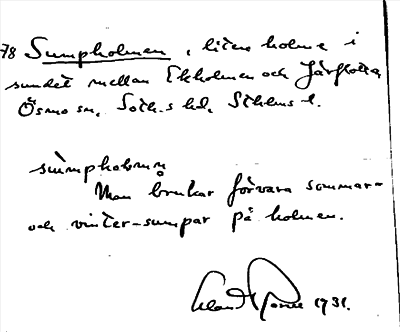 78 Sumpholmen, liten holme i
sundet mellan Ekholmen och Järflotta,
Ösmo sn, Soth.s hd, Sthlms l.
Man brukar förvara sommar-
och vinter-sumpar på holmen.
1931.